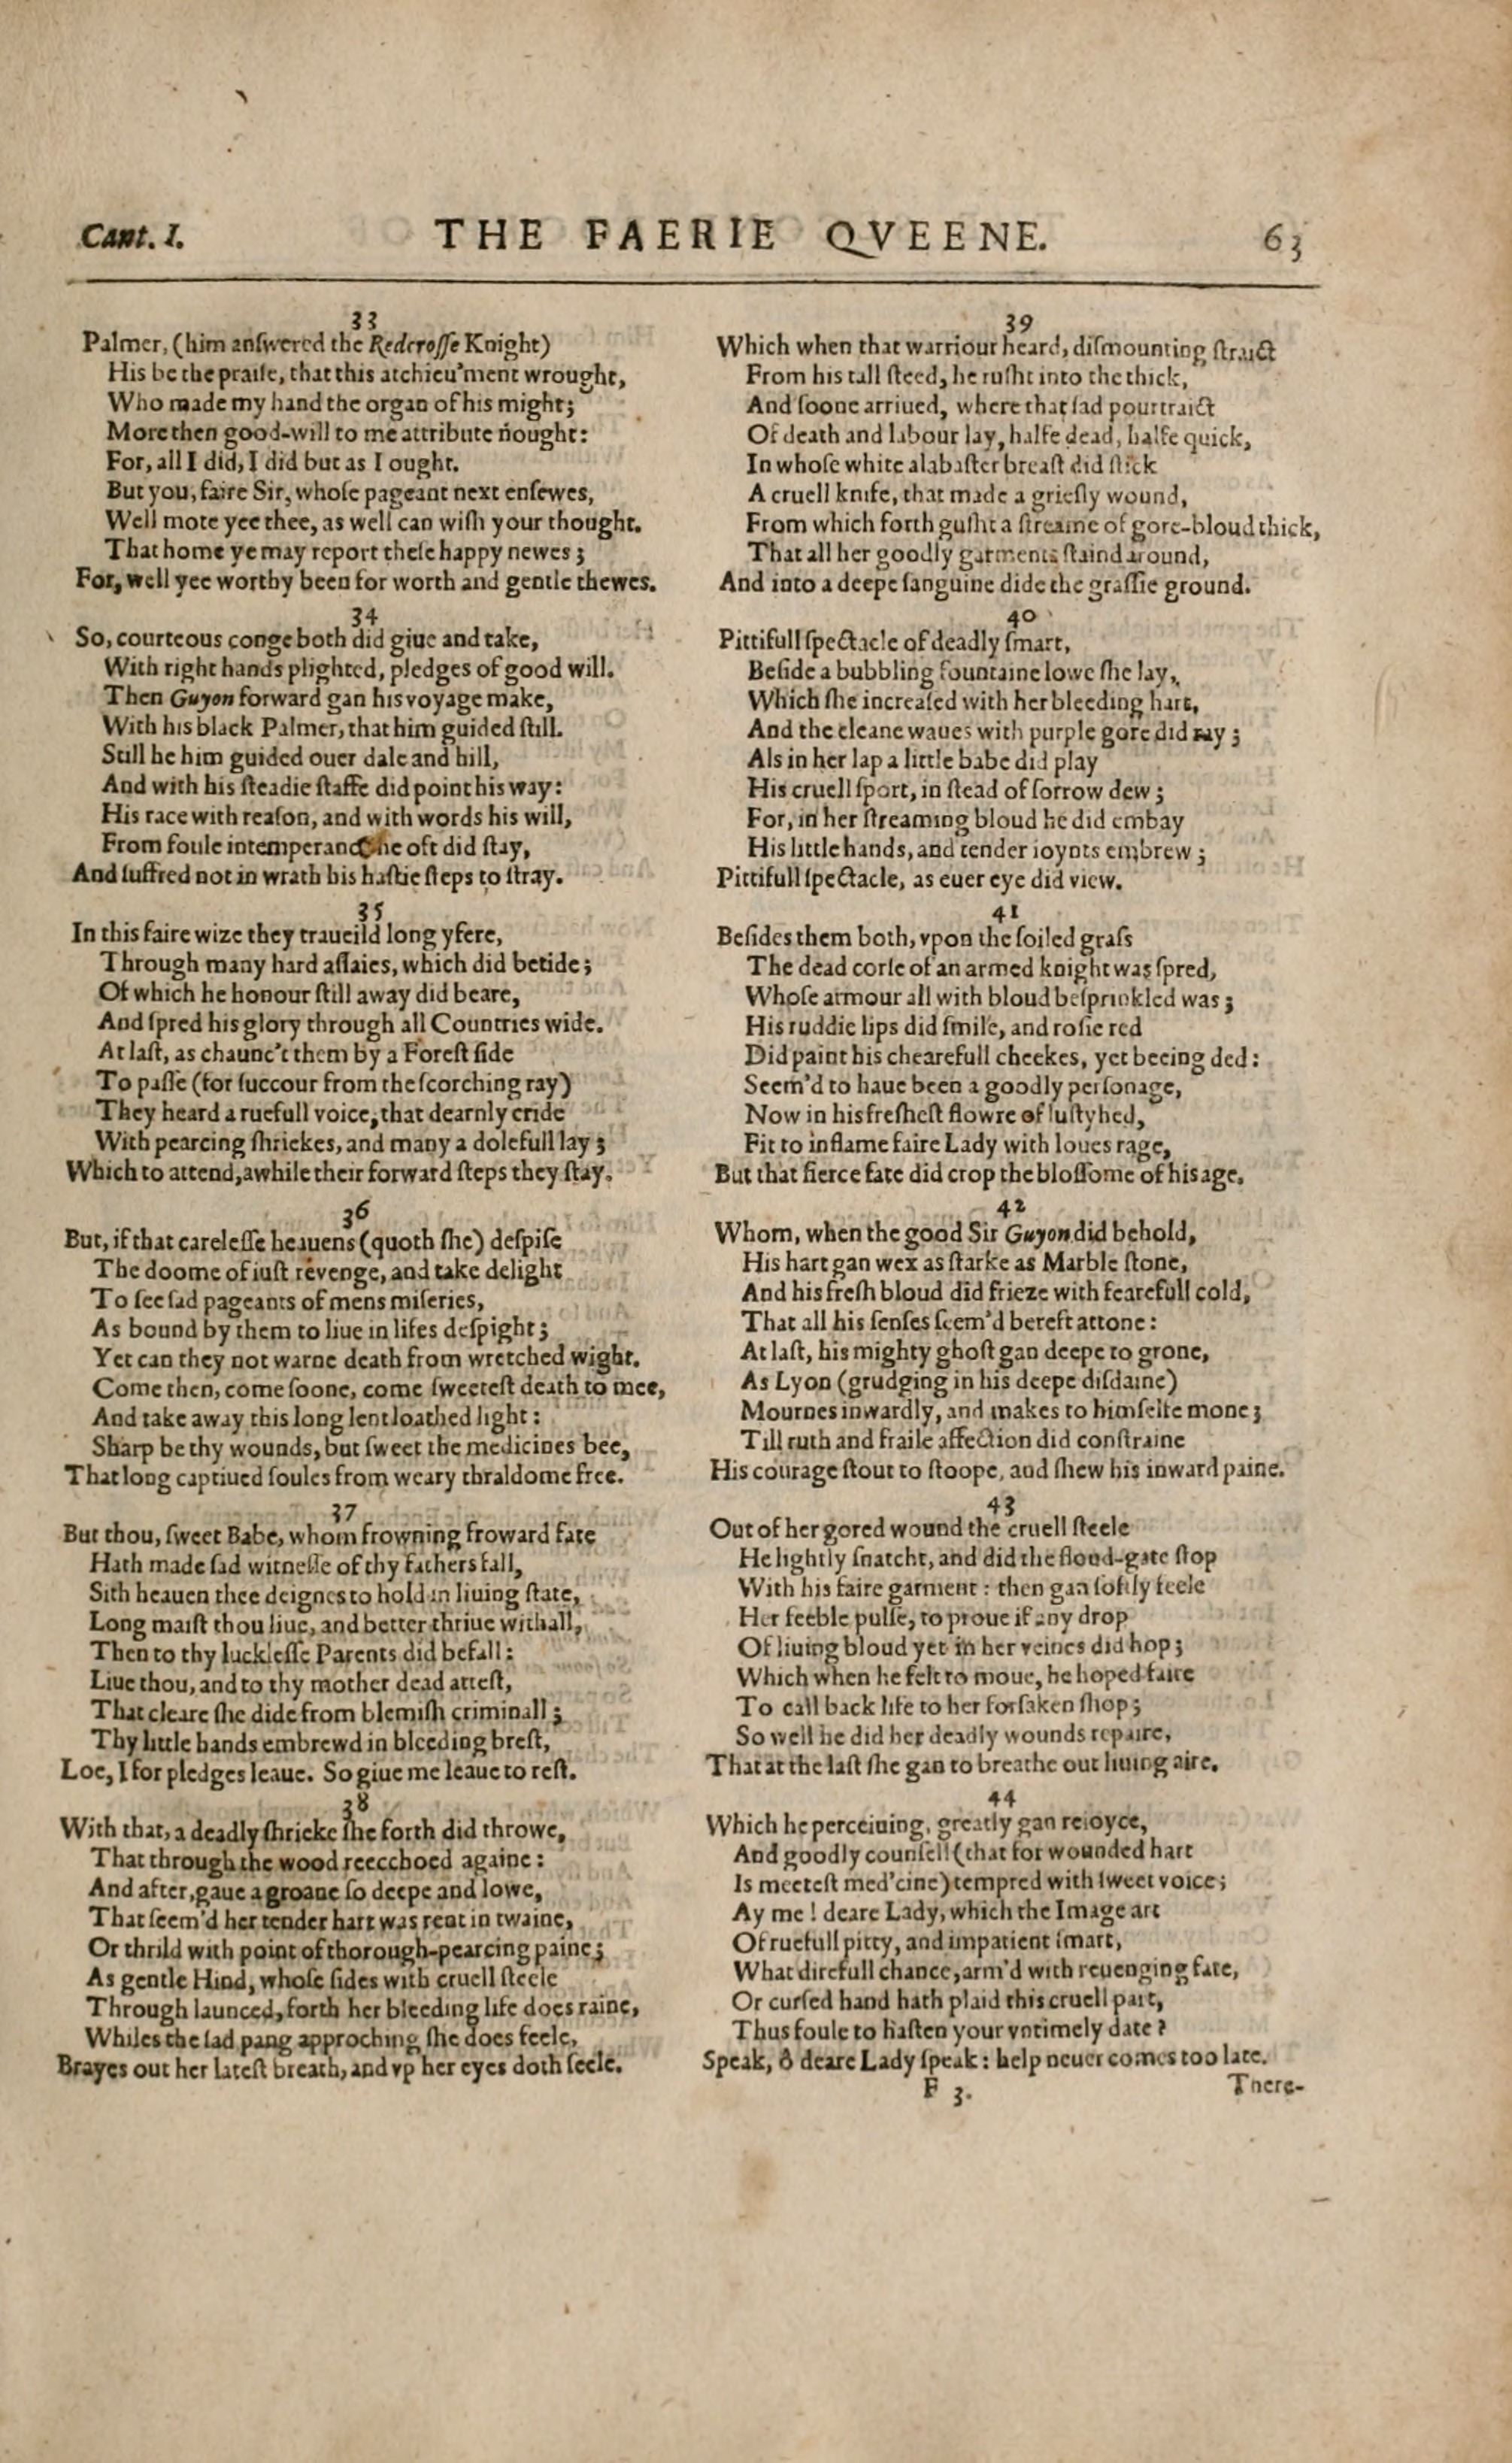 Cant. I.
THE FAERIE QVEENE.
63
33
Palmer, (him anſwered the Redcroſſe Knight)
His be the praiſe, that this atchieu'ment wrought,
Who made my hand the organ of his might;
More then good-will to me attribute nought:
For, all I did, I did but as I ought.
But you, faire Sir, whoſe pageant next enſewes,
Well mote yee thee, as well can wiſh your thought.
That home ye may report theſe happy newes;
For, well yee worthy been for worth and gentle thewes.
34
So, courteous conge both did giue and take,
With right hands plighted, pledges of good will.
Then Guyon forward gan his voyage make,
With his black Palmer, that him guided ſtill.
Still he him guided ouer dale and hill,
And with his ſteadie ſtaffe did point his way:
His race with reaſon, and with words his will,
From foule intemperance he oft did ſtay,
And ſuffred not in wrath his haſtie ſteps to ſtray.
35
In this faire wize they traueild long yfere,
Through many hard aſſaies, which did betide;
Of which he honour ſtill away did beare,
And ſpred his glory through all Countries wide.
At laſt, as chaunc't them by a Foreſt ſide
To paſſe (for ſuccour from the ſcorching ray)
They heard a ruefull voice, that dearnly cride
With pearcing ſhriekes, and many a dolefull lay;
Which to attend, awhile their forward ſteps they ſtay.
36
But, if that careleſſe heauens (quoth ſhe) deſpiſe
The doome of iuſt revenge, and take delight
To ſee ſad pageants of mens miſeries,
As bound by them to liue in lifes deſpight;
Yet can they not warne death from wretched wight.
Come then, come ſoone, come ſweeteſt death to mee,
And take away this long lent loathed light:
Sharp be thy wounds, but ſweet the medicines bee,
That long captiued ſoules from weary thraldome free.
37
But thou, ſweet Babe, whom frowning froward fate
Hath made ſad witneſſe of thy fathers fall,
Sith heauen thee deignes to hold in liuing ſtate,
Long maiſt thou liue, and better thriue withall,
Then to thy luckleſſe Parents did befall:
Liue thou, and to thy mother dead atteſt,
That cleare ſhe dide from blemiſh criminall;
Thy little hands embrewd in bleeding breſt,
Loe, I for pledges leaue. So giue me leaue to reſt.
38
With that, a deadly ſhrieke ſhe forth did throwe,
That through the wood reecchoed againe:
And after, gaue a groane ſo deepe and lowe,
That ſeem'd her tender hart was rent in twaine,
Or thrild with point of thorough-pearcing paine;
As gentle Hind, whoſe ſides with cruell ſteele
Through launced, forth her bleeding life does raine,
Whiles the ſad pang approching ſhe does feele,
Brayes out her lateſt breath, and vp her eyes doth ſeele.
39
Which when that warriour heard, diſmounting ſtraict
From his tall ſteed, he ruſht into the thick,
And ſoone arriued, where that ſad pourtraict
Of death and labour lay, halfe dead, halfe quick,
In whoſe white alabaſter breaſt did ſtick
A cruell knife, that made a grieſly wound,
From which forth guſht a ſtreame of gore-bloud thick,
That all her goodly garments ſtaind around,
And into a deepe ſanguine dide the graſſie ground.
40
Pittifull ſpectacle of deadly ſmart,
Beſide a bubbling fountaine lowe ſhe lay,
Which ſhe increaſed with her bleeding hart,
And the cleane waues with purple gore did ray;
Als in her lap a little babe did play
His cruell ſport, in ſtead of ſorrow dew;
For, in her ſtreaming bloud he did embay
His little hands, and tender ioynts embrew;
Pittifull ſpectacle, as euer eye did view.
41
Beſides them both, vpon the ſoiled graſs
The dead corſe of an armed knight was ſpred,
Whoſe armour all with bloud beſprinkled was;
His ruddie lips did ſmile, and roſie red
Did paint his chearefull cheekes, yet beeing ded:
Seem'd to haue been a goodly perſonage,
Now in his freſheſt flowre of luſtyhed,
Fit to inflame faire Lady with loues rage,
But that fierce fate did crop the bloſſome of his age.
42
Whom, when the good Sir Guyon did behold,
His hart gan wex as ſtarke as Marble ſtone,
And his freſh bloud did frieze with fearefull cold,
That all his ſenſes ſeem'd bereft attone:
At laſt, his mighty ghoſt gan deepe to grone,
As Lyon (grudging in his deepe diſdaine)
Mournes inwardly, and makes to himſelfe mone;
Till ruth and fraile affection did conſtraine
His courage ſtout to ſtoope, and ſhew his inward paine.
43
Out of her gored wound the cruell ſteele
He lightly ſnatcht, and did the floud-gate ſtop
With his faire garment: then gan ſoftly feele
Her feeble pulſe, to proue if any drop
Of liuing bloud yet in her veines did hop;
Which when he felt to moue, he hoped faire
To call back life to her forſaken ſhop;
So well he did her deadly wounds repaire,
That at the laſt ſhe gan to breathe out liuing aire.
44
Which he perceiuing, greatly gan reioyce,
And goodly counſell (that for wounded hart
Is meeteſt med'cine) tempred with ſweet voice;
Ay me! deare Lady, which the Image art
Of ruefull pitty, and impatient ſmart,
What direfull chance, arm'd with reuenging fate,
Or curſed hand hath plaid this cruell part,
Thus foule to haſten your vntimely date?
Speak, ô deare Lady ſpeak: help neuer comes too late.
F 3.
There-